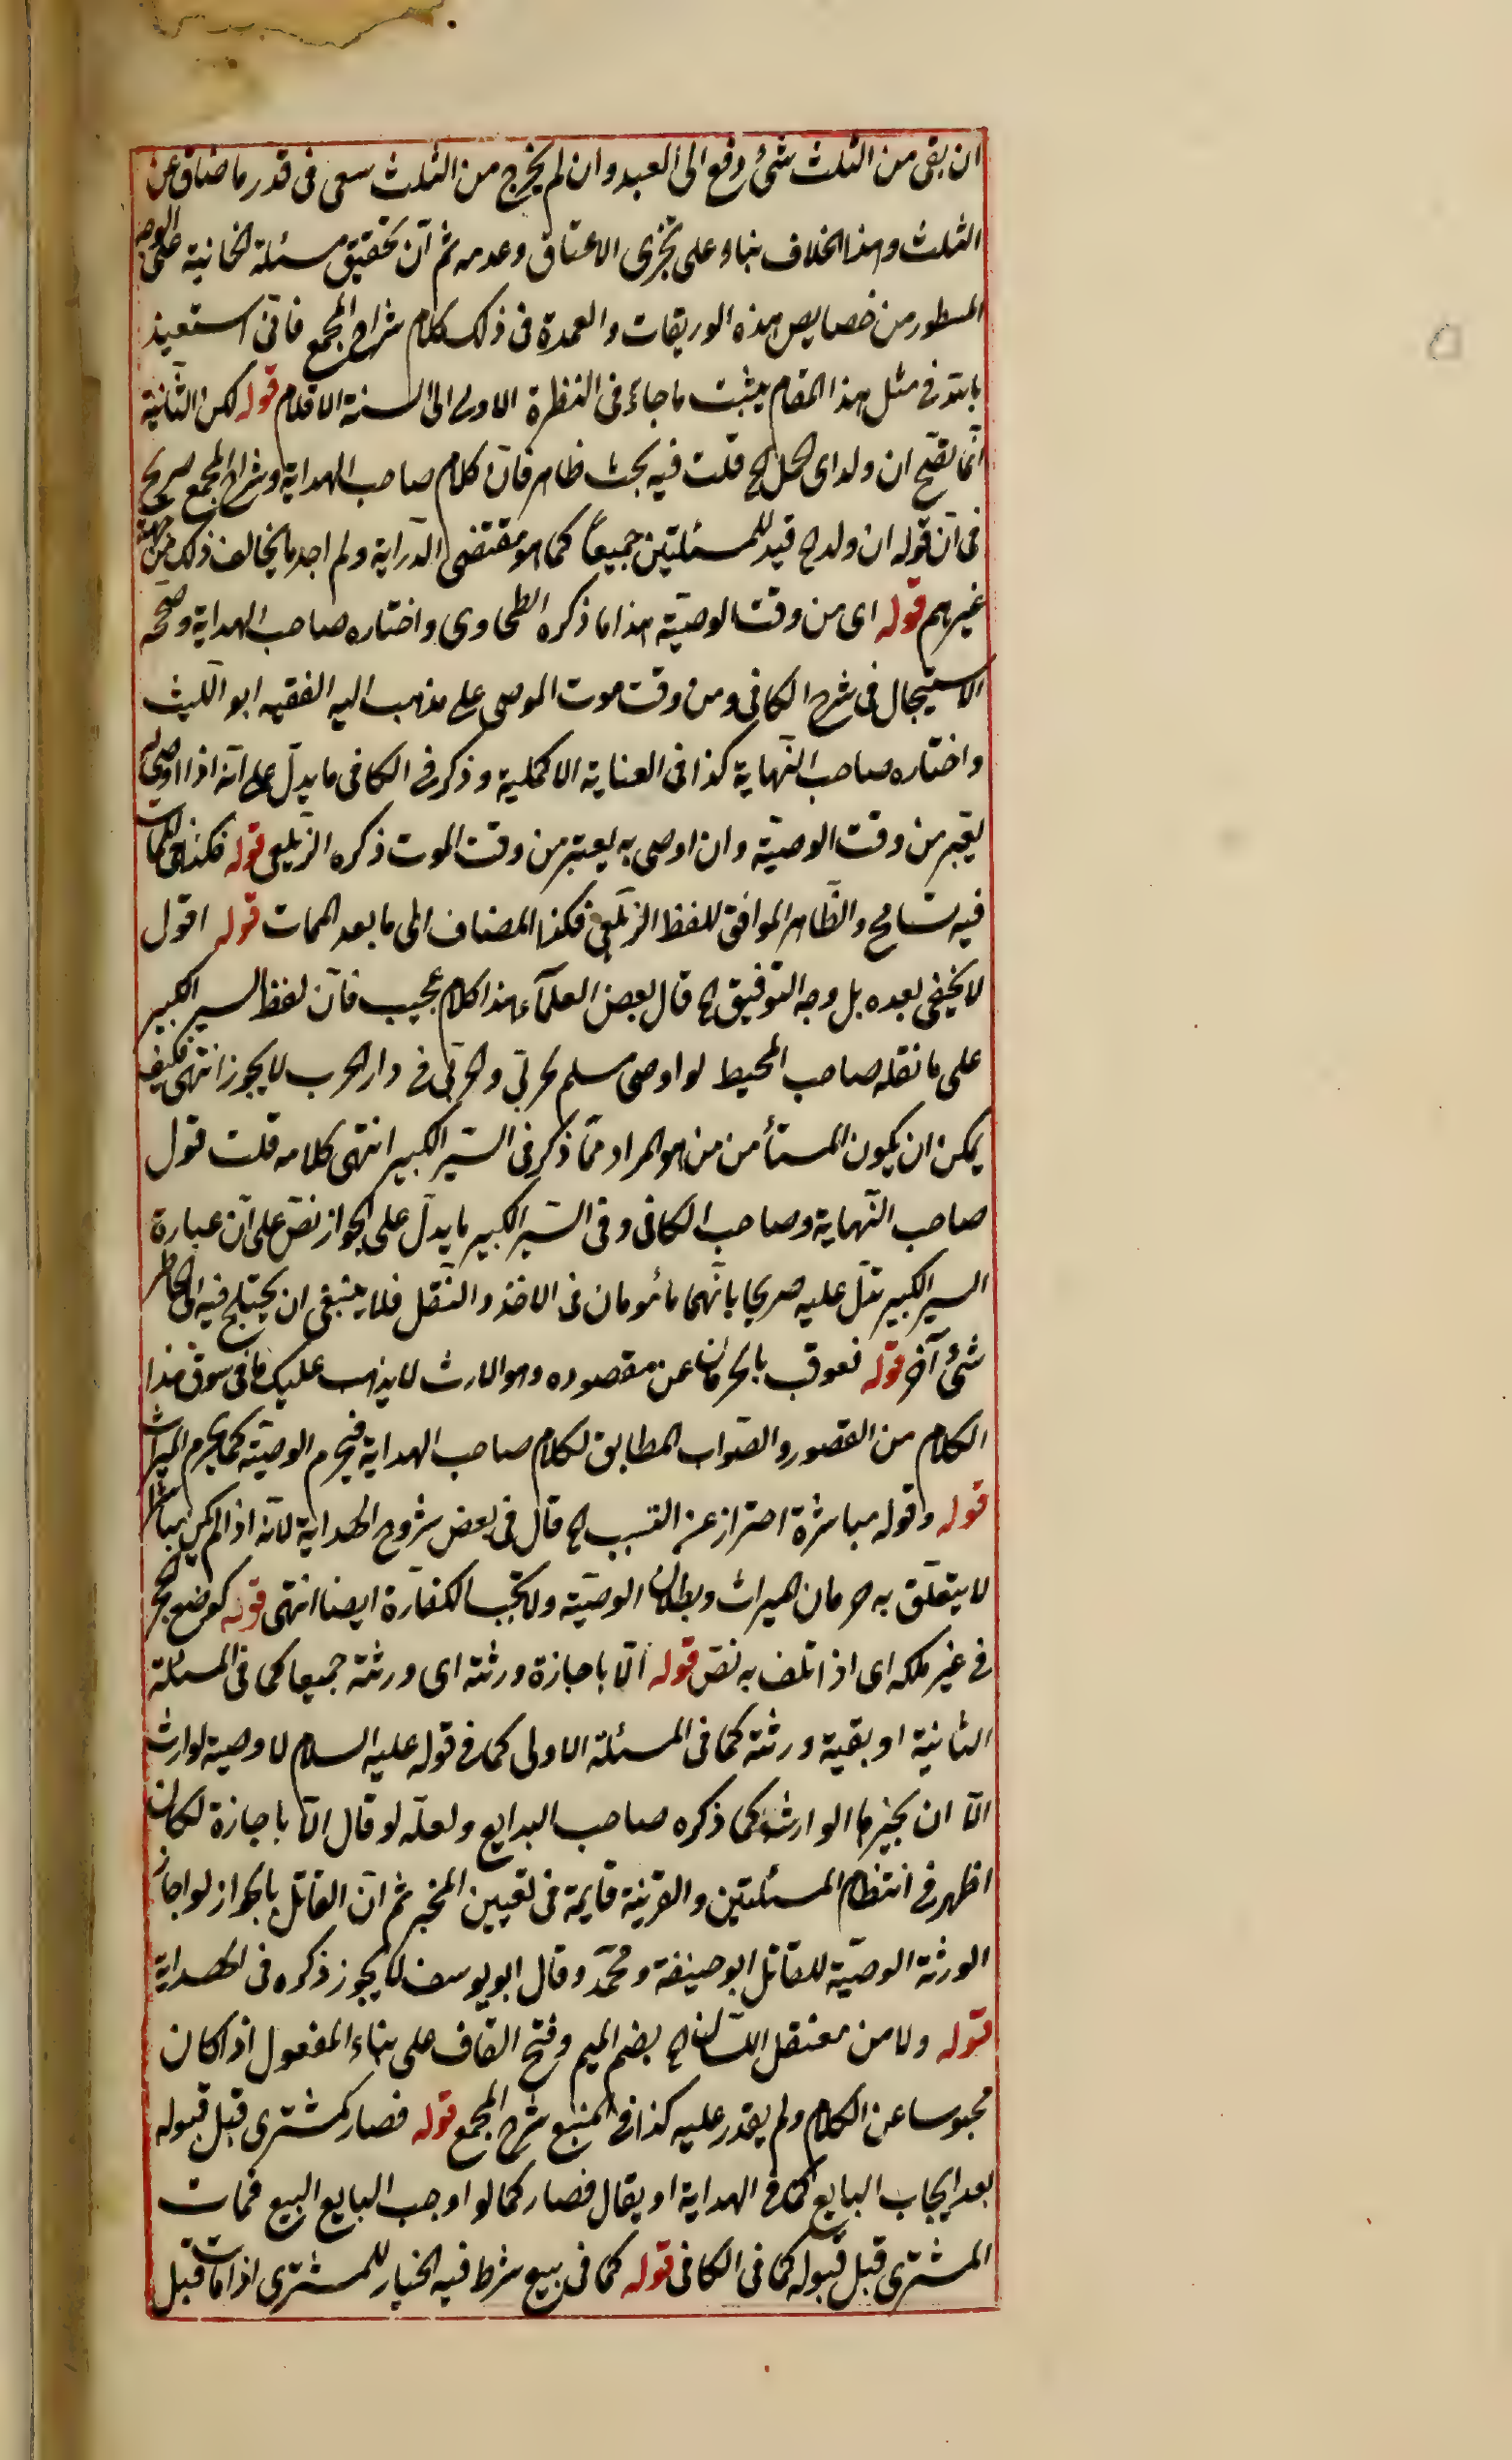 ان بقى من الثلث شئ دفع الى العبد وان لم يخرج من الثلث سعى فى قدر ما ضاق عن
الثلث وهذا الخلاف بناء على تجزى الاعتاق وعدمه ثم ان تحقيق مسئلة الخانية على الوجه
المسطور من خصايص هذه الوريقات والعمدة فى ذلك كلام شراح المجمع فانى استعيذ
بالله فى مثل هذا المقام يثبت ما جاء فى النظرة الاولى الى السنة الاقلام قوله لكن الثانية
انما تصح ان ولد اى الحمل الخ قلت فيه بحث ظاهر فان كلام صاحب الهداية وشراح المجمع صريح
فى ان قوله ان ولد الخ قيد للمسئلتين جميعا كما هو مقتضى الدراية ولم اجد ما يخالف ذلك من جهة
غيرهم قوله اى من وقت الوصية هذا ما ذكره الطحاوى واختاره صاحب الهداية وصححه
الاسبيجابى فى شرح الكافى ومن وقت موت الموصى على مذهب اليه الفقيه ابو الليث
واختاره صاحب النهاية كذا فى العناية الاكملية وذكر فى الكافى ما يدل على انه اذا اوصى له
يعتبر من وقت الوصية وان اوصى به يعتبر من وقت الموت ذكره الزيلعى قوله فكذا فى الممات
فيه تسامح والظاهر الموافق للفظ الزيلعى فكذا المضاف الى ما بعد الممات قوله اقول
لا يخفى بعده بل وجه التوفيق الخ قال بعض العلماء هذا كلام عجيب فان لفظ السير الكبير
على ما نقله صاحب المحيط لو اوصى مسلم لحربى والحربى فى دار الحرب لا يجوز انتهى فكيف
يمكن ان يكون المستأمن من هو المراد مما ذكر فى السير الكبير انتهى كلامه قلت قول
صاحب النهاية وصاحب الكافى وفى السير الكبير ما يدل على الجواز نص على ان عبارة
السير الكبير تدل عليه صريحا بانهما مأمونان فى الاخذ والنقل فلا ينبغى ان يختلج فيه الى الخاطر
شئ آخر قوله فعوقب بالحرمان عن مقصوده وهو الارث لا يذهب عليك ما فى سوق هذا
الكلام من القصور والصواب المطابق لكلام صاحب الهداية فيحرم الوصية كما يحرم الميراث
قوله وقوله مباشرة احتراز عن التسبب الخ قال فى بعض شروح الهداية لانه اذا لم يكن مباشرا
لا يتعلق به حرمان الميراث وبطلان الوصية ولا تجب الكفارة ايضا انتهى قوله كوضع الحجر
فى غير ملكه اى اذا تلف به نفس قوله الا باجازة ورثته اى ورثته جميعا كما فى المسئلة
الثانية او بقية ورثته كما فى المسئلة الاولى كما فى قوله عليه السلام لا وصية لوارث
الا ان يجيزها الوارث كما ذكره صاحب البدايع ولعله لو قال الا باجازة لكان
اظهر فى انتظام المسئلتين والقرينة قايمة فى تعيين المخبر ثم ان القائل بالجواز لو اجاز
الورثة الوصية للقاتل ابو حنيفة ومحمد وقال ابو يوسف لا يجوز ذكره فى الهداية
قوله ولا من معتقل اللسان الخ بضم الميم وفتح القاف على بناء المفعول اذا كان
محبوسا عن الكلام ولم يقدر عليه كذا فى المنبع شرح المجمع قوله فصار كمشترى قبل قبوله
بعد ايجاب البايع كما فى الهداية او يقال فصار كما لو اوجب البايع البيع فمات
المشترى قبل قبوله كما فى الكافى قوله كما فى بيع شرط فيه الخيار للمشترى اذا مات قبل